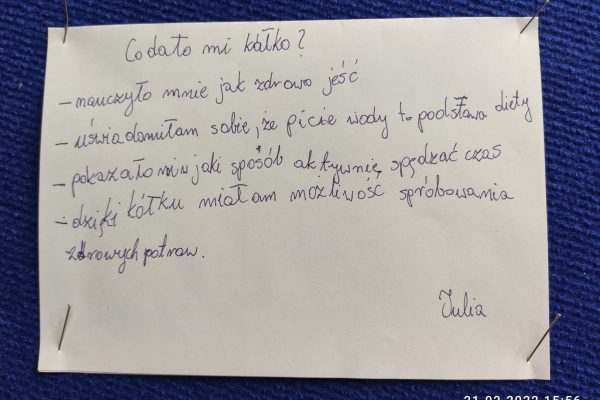 Co dało mi kółko?
- nauczyło mnie jak zdrowo jeść
- uświadomiłam sobie, że picie wody to podstawa diety
- pokazało mi w jaki sposób aktywnie spędzać czas
- dzięki kółku miałam możliwość spróbowania
zdrowych potraw.
Julia